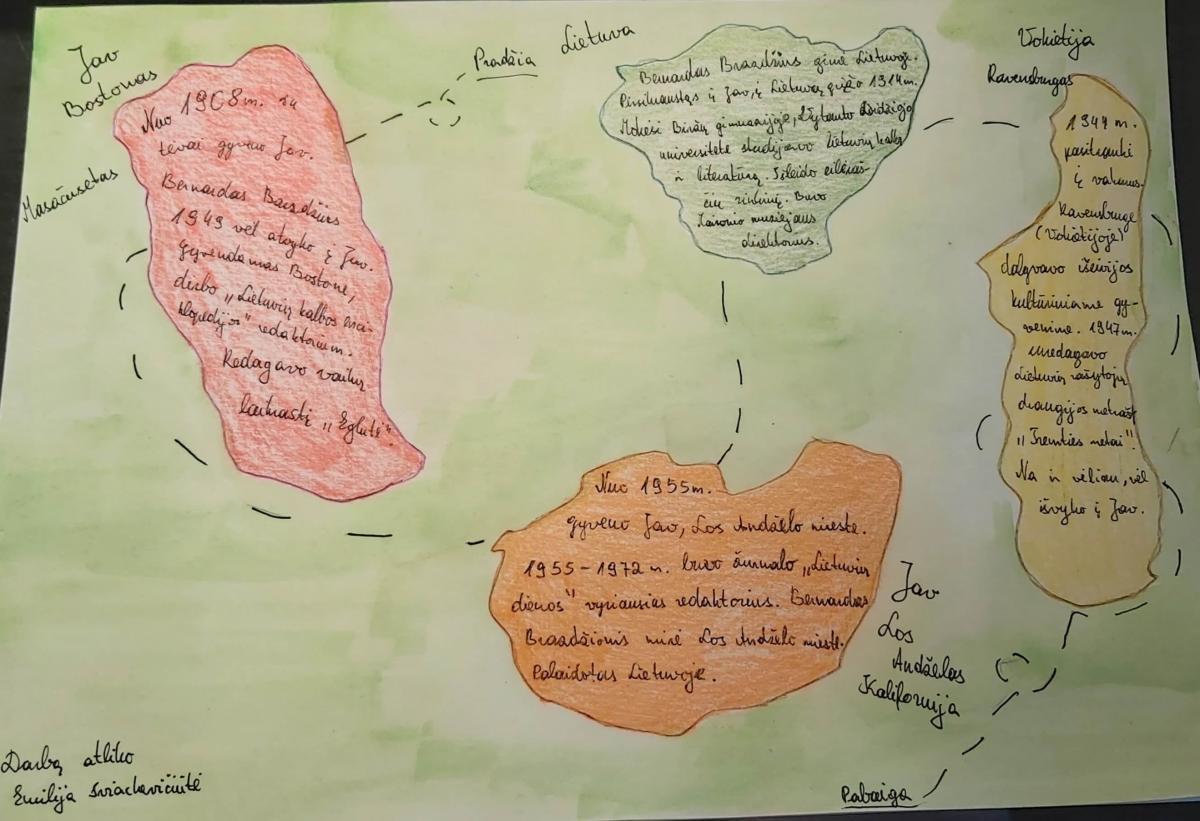 Jav
Bostonas
Masačusetas
Nuo 1908m. su
tėvai gyveno Jav.
Bernardas Brazdžius
1949 vėl atvyko į Jav.
Gyvendamas Bostone,
dirbo „Lietuvių kalbos enci-
klopedijos" redaktorium.
Redagavo vaikų
laikraštį „Eglutė".
Pradžia
Lietuva
Bernardas Brazdžius gimė Lietuvoje.
Persikraustęs į Jav, į Lietuvą grįžo 1914m.
Mokėsi Biržų gimnazijoje, Vytauto Didžiojo
universitete studijavo lietuvių kalbą
ir literatūrą. Išleido eilėraš-
čių rinkinių. Buvo
Maironio muziejaus
direktorius.
Vokietija
Ravensburgas
1944 m.
pasitraukė
į vakarus.
Ravensburge
(Vokietijoje)
dalyvavo išeivijos
kultūriniame gy-
venime. 1947m.
suredagavo
Lietuvių rašytojų
draugijos metraštį
„Tremties metai".
Na ir vėliau, vėl
išvyko į Jav.
Nuo 1955m.
gyveno Jav, Los Andželo mieste.
1955-1972 m. buvo žurnalo „Lietuvių
dienos" vyriausias redaktorius. Bernardas
Brazdžionis mirė Los Andželo mieste.
Palaidotas Lietuvoje.
Jav
Los
Andželas
Kalifornija
Pabaiga
Darbą atliko
Emilija